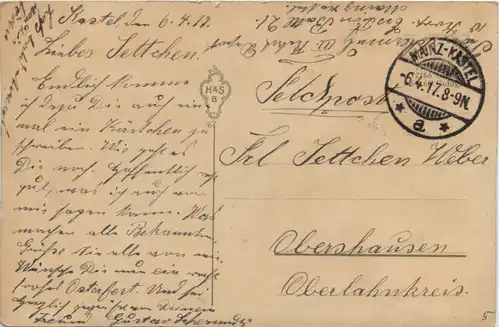 Kastel den 6.4.17.
Liebes Settchen.
Endlich komme
ich dazu Dir auch ein
mal ein Kärtchen zu
schreiben. Wie geht es
Dir noch. Hoffentlich recht
gut, was ich auch von
mir sagen kann. Was
machen alle Bekannten,
Grüße Sie alle von mir.
Wünsche Dir nun ein recht
frohes Osterfest. Und sei
herzlich gegrüßt von Deinem
Freund Gustav
H&S
B
MAINZ-KASTEL
-6.4.17.8-9N.
* a *
Feldpost
Frl Settchen Weber
Obershausen
Oberlahnkreis.
5